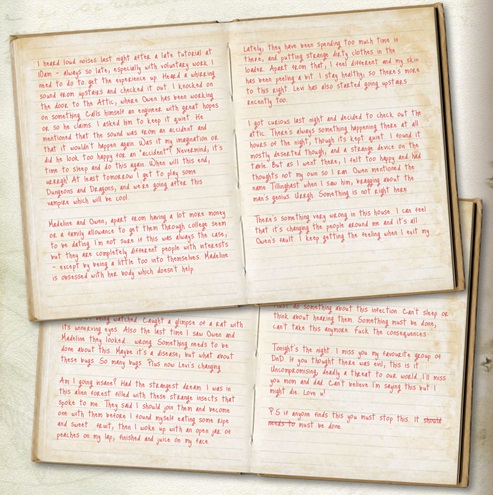 I heard loud noises last night after a late tutorial at
10am - always so late, especially with voluntary work I
need to do to get the experience up. Heard a whirring
sound from upstairs and checked it out. I knocked on
the door to the Attic, where Owen has been working
on something. Calls himself an engineer with great hopes
or so he claims. I asked him to keep it quiet. He
mentioned that the sound was from an accident and
that it wouldn't happen again. Was it my imagination or
did he look too happy for an "accident"? Nevermind, it's
time to sleep and do this again. When will this end,
urrrgh! At least tomorrow I get to play some
Dungeons and Dragons, and we're going after this
vampire which will be cool.
Madeline and Owen, apart from having a lot more money
or a family allowance to get them through college seem
to be dating. I'm not sure if this was always the case,
but they are completely different people with interests
- except by being a little too into themselves. Madeline
is obsessed with her body which doesn't help.
Lately, they have been spending too much time in
there, and putting strange dirty clothes in the
loader. Apart from that, I feel different and my skin
has been peeling a bit. I stay healthy, so there's more
to this right. Levi has also started going upstairs
recently too.
I got curious last night and decided to check out the
attic. There's always something happening there at all
hours of the night, though its kept quiet. I found it
mostly deserted though, and a strange device on the
table. But as I went there, I felt too happy and had
thoughts not my own so I ran. Owen mentioned the
name Tillinghast when I saw him, bragging about the
man's genius. Urrgh. Something is not right here.
There's something very wrong in this house. I can feel
that it's changing the people around me and it's all
Owen's fault. I keep getting the feeling when I exit my
being watched. Caught a glimpse of a rat with
it's unnerving eyes. Also the last time I saw Owen and
Madeline they looked... wrong. Something needs to be
done about this. Maybe it's a disease, but what about
these bugs. So many bugs. Plus now Levi's changing.
Am I going insane? Had the strangest dream. I was in
this alien forest filled with these strange insects that
spoke to me. They said I should join them and become
one with them before I found myself eating some ripe
and sweet fruit, then I woke up with an open jar of
peaches on my lap, finished and juice on my face.
do something about this infection. Can't sleep or
think about hearing them. Something must be done,
can't take this anymore. Fuck the consequences.
Tonight's the night. I miss you my favourite group of
DnD. If you thought there was evil, this is it.
Uncompromising, deadly, a threat to our world. I'll miss
you mom and dad. Can't believe I'm saying this but I
might die. Love u!
P.S if anyone finds this you must stop this. It should
needs to must be done.